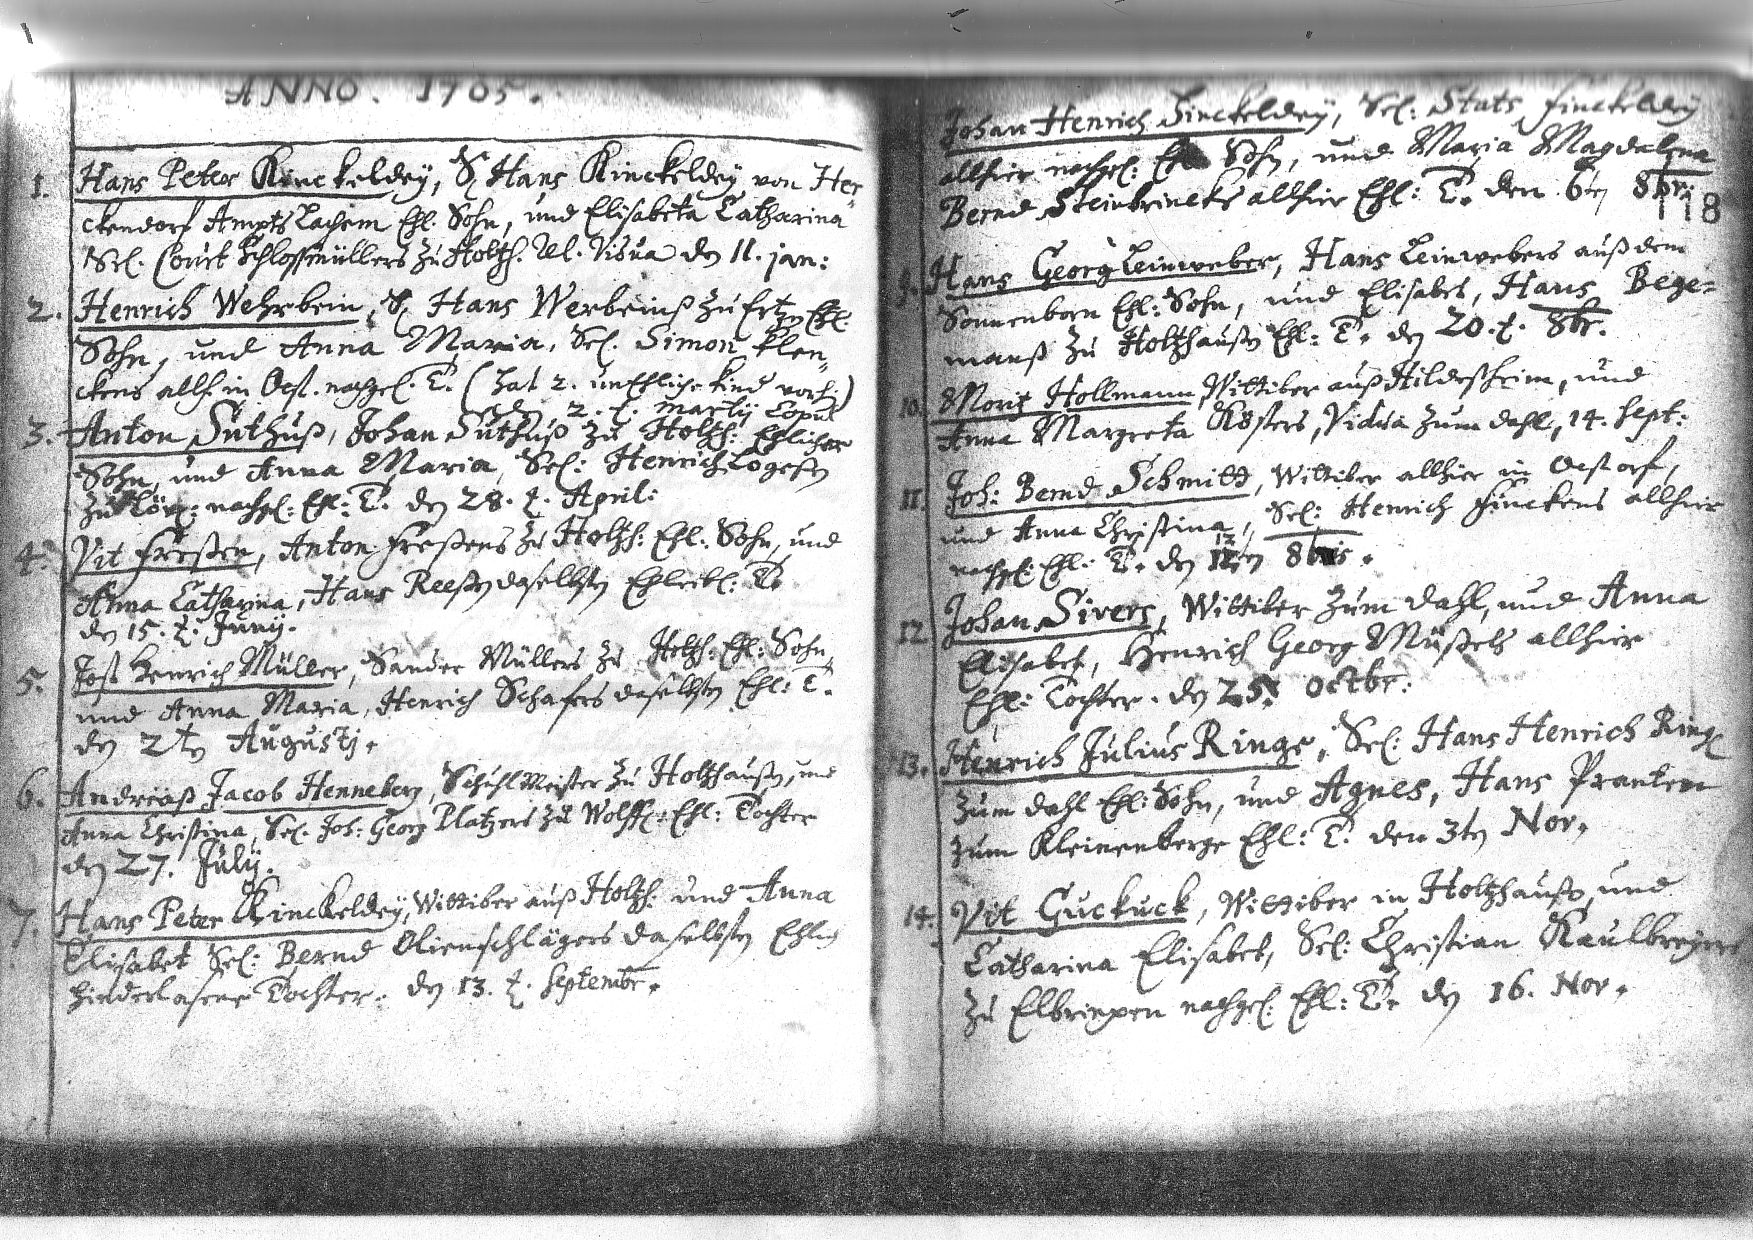 ANNO. 1705.
1. Hans Peter Kinckeldeÿ, S. Hans Kinckeldeÿ von Her
ckendorf Ampts Lachem Ehl. Sohn, und Elisabeta Catharina
Sel. Court Schlossmüllers zu Holtzh. rel. Vidua den 11. jan:
2. Henrich Wehrbein, S. Hans Werbeinß zu Ertzn Ehl:
Sohn, und Anna Maria, Sel. Simon Klen„
ckens allh. in Oest. nachgel. T. (hat 2. unEhliche Kind vorh.)
den 2. t. Martij Copul
3. Anton Suthuß, Johan Suthuß zu Holtzh: Ehlicher
Sohn, und Anna Maria, Sel: Henrich Lögesen
zu nachgel: Ehl: T. den 28. t. April:
4. Vit Freßen, Anton Freßens zu Holtzh: Ehl: Sohn, und
Anna Catharina, Hans Reesen daselbsten Ehleibl: T.
den 15. t. Junij.
5. Jost Henrich Müller, Sander Müllers zu Holtzh: Ehl: Sohn,
und Anna Maria, Henrich Schafers daselbsten Ehl: T.
den 2ten Augustj.
6. Andreaß Jacob Henneberg, Schuhl Meister zu Holtzhaußen, und
Anna Christina, Sel. Joh: Georg Platzers zu Wolff: Ehl: Tochter
den 27. Julij.
7. Hans Peter Kinckeldeÿ, Wittiber auß Holtzh: und Anna
Elisabet Sel: Bernd Olienschlägers daselbsten Ehlig
hinderlasene Tochter: den 13. t. Septembr.
Johan Henrich Finckeldeÿ, Sel: Stats Finckeldeÿ
allhier nachgel: Ehl Sohn, und Maria Magdalena
Bernd Steinbrincks allhier Ehl: T. den 6ten 8br:
118
9. Hans Georg Leinweber, Hans Leinwebers auß dem
Sonnenborn Ehl: Sohn, und Elisabet, Hans Bege=
manß zu Holtzhaußen Ehl: T. den 20. t. 8br.
10. Moritz Hollmann Wittiber auß Hildeßheim, und
Anna Margreta Kösters, Vidua zum dahl, 14. Sept:
11. Joh: Bernd Schmitt, Wittiber allhier in Oestorf,
und Anna Christina, Sel: Henrich Finckens allhier
nachgel: Ehl: T. den 12ten 8bris.
12. Johan Sivers, Wittiber zum dahl, und Anna
Elisabet, Henrich Georg Müßels allhier
Ehl: Tochter. den 25. Octbr:
13. Henrich Julius Ringe, Sel: Hans Henrich Ringe
zum dahl Ehl: Sohn, und Agnes, Hans Pranken
zum Kleinenberge Ehl: T. den 3ten Nov.
14. Vit Guckuck, Wittiber in Holtzhaußen und
Catharina Elisabet, Sel: Christian Kaulbreyers
zu Elbrinxen nachgel: Ehl: T. den 16. Nov.